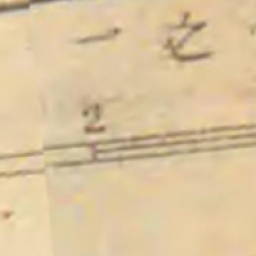 一之
2